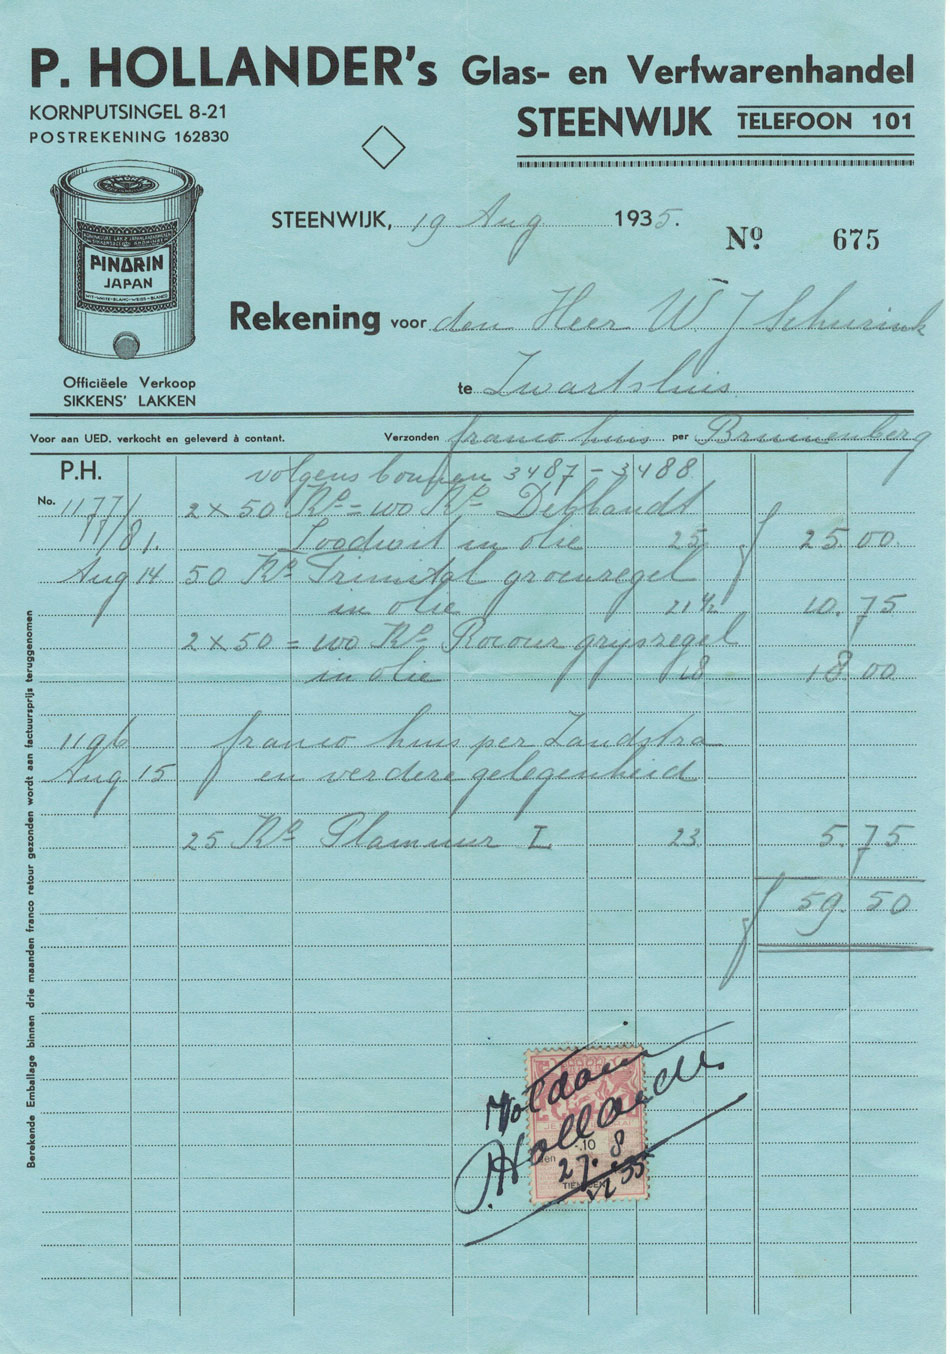 P. HOLLANDER's Glas- en Verfwarenhandel
KORNPUTSINGEL 8-21
POSTREKENING 162830
STEENWIJK TELEFOON 101
PINARIN
JAPAN
Officiëele Verkoop
SIKKENS' LAKKEN
STEENWIJK, 19 Aug 1935.
Nº 675
Rekening voor den Heer W J Schurink
te Zwartsluis
Voor aan UED. verkocht en geleverd à contant.
Verzonden franco huis per Brunenberg
P.H. volgens bonnen 3487 - 3488
No. 1177/ 2 x 50 Ko = 100 Ko
11/81. Loodwit in olie 25 25.00
Aug 14 50 Ko groenzegel
in olie 21 1/2 10.75
2 x 50 = 100 Ko grijszegel
in olie 18 18.00
1196 franco huis per Zandstra
Aug 15 en verdere gelegenheid
25 Ko Plamuur L 23 5.75
59.50
Voldaan
P. Hollander
27.8
35
.10
TIEN CENT
Berekende Emballage binnen drie maanden franco retour gezonden wordt aan factuursprijs teruggenomen